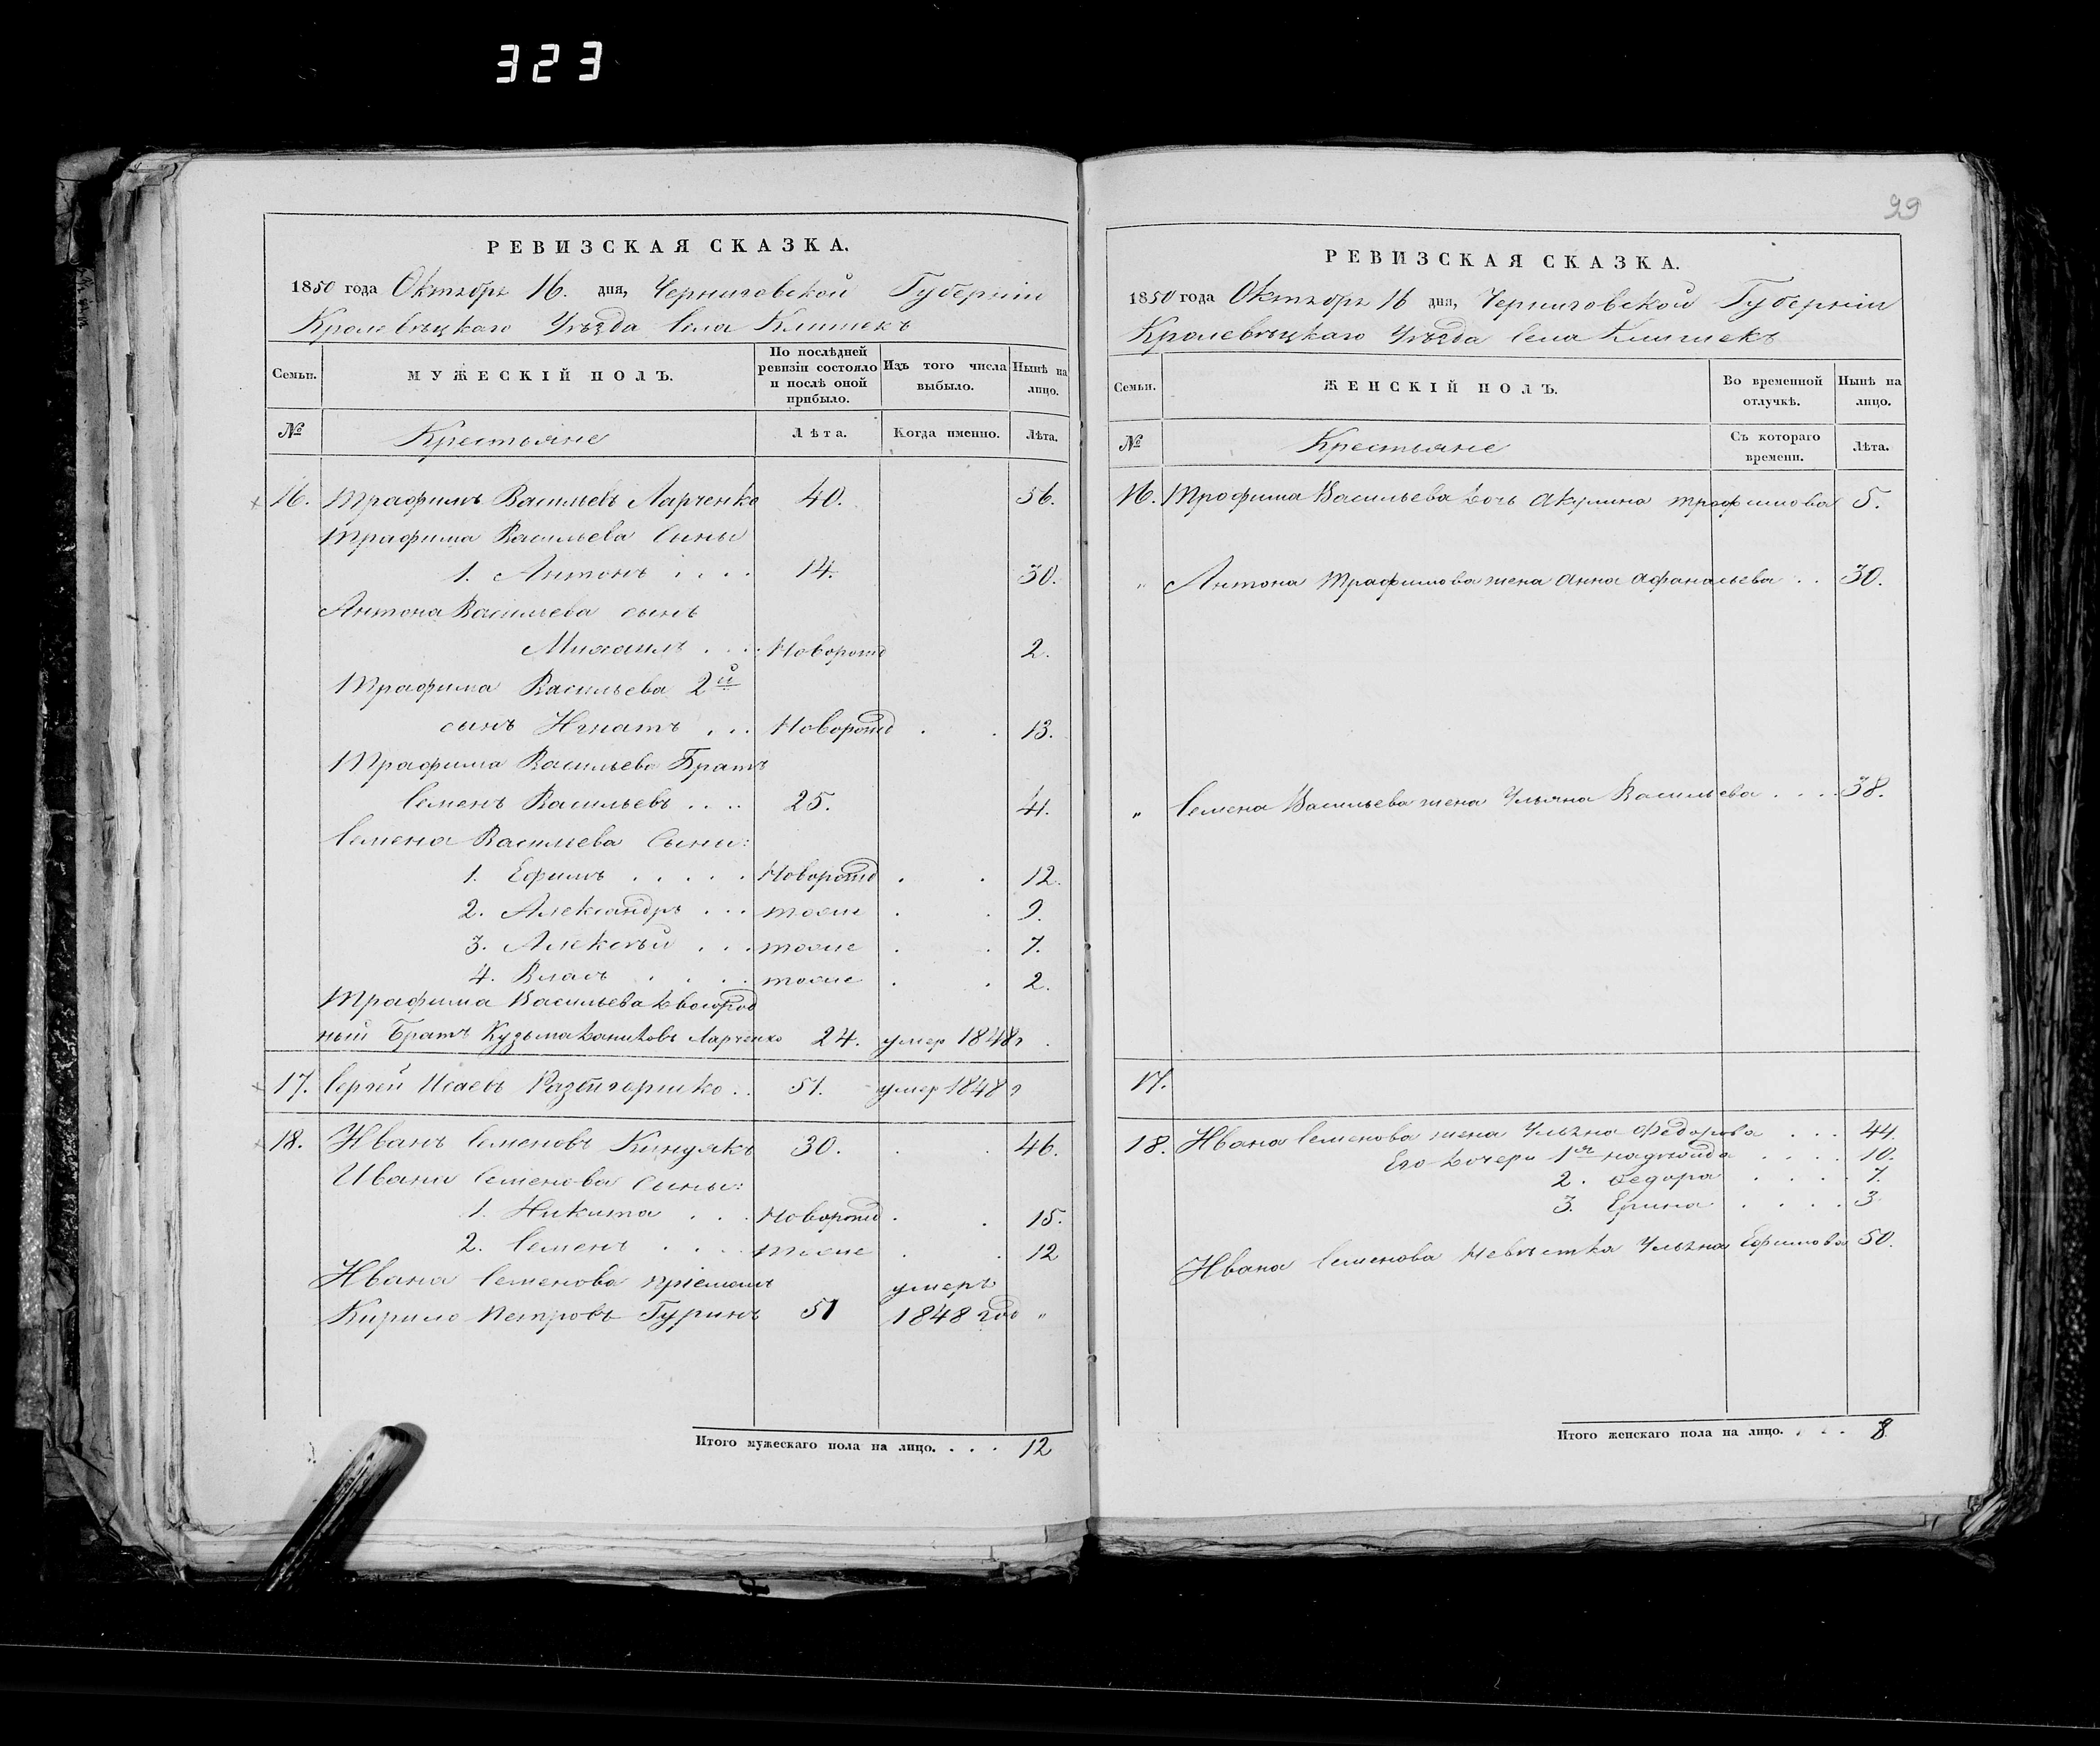 323
РЕВИЗСКАЯ СКАЗКА.
1850 года Октября 16. дня, Черниговской Губерніи
Кролевѣцкаго Уѣзда Села Клишекъ
Семьи. МУЖЕСКІЙ ПОЛЪ. По послѣдней ревизіи состояло и послѣ оной прибыло. Изъ того числа выбыло. Нынѣ на лицо.
№ Крестьяне Лѣта. Когда именно. Лѣта.
16. Трафимъ Васильевъ Ларченко 40. 56.
Трафима Васильева Сыны
1. Антонъ . . . . 14. 30.
Антона Васильева сынъ
Михаилъ . . . Новорожд 2.
Трафима Васильева 2й
сынъ Игнатъ . . . Новорожд . . 13.
Трафима Васильева Братъ
Семенъ Васильевъ . . . . 25. 41.
Семена Васильева Сыни:
1. Ефимъ . . . . . Новорожд . . 12.
2. Александръ . . . тоже . . 9.
3. Алексѣй . . . тоже . . 7.
4. Власъ . . . . тоже . . 2.
Трафима Васильева Двоюрод
ный Братъ Кузьма Ларченко 24. умер 1848 г .
17. Сергѣй Исаевъ . . 51. умер 1848 г
18. Иванъ Семеновъ Кинулкъ 30. . . 46.
Ивана Семенова Сыны:
1. Никита . . . Новорожд . . 15.
2. Семенъ . . . . тоже . . 12
Ивана Семенова пріемышъ умеръ
Кирило Петровъ Гуринъ 51 1848 год "
Итого мужескаго пола на лицо. . . . 12
29
РЕВИЗСКАЯ СКАЗКА.
1850 года Октября 16 дня, Черниговской Губерніи
Кролевѣцкаго Уѣзда Села Клишекъ
Семьи. ЖЕНСКІЙ ПОЛЪ. Во временной отлучкѣ. Нынѣ на лицо.
№ Крестьяне Съ котораго времени. Лѣта.
16. Трофима Васильева Дочь Акулина Трофимова 5.
" Антона Трафимова жена Анна Афанасьева . . 30.
" Семена Васильева жена Ульяна Васильева . . . . 38.
17.
18. Ивана Семенова жена Ульяна Федорова . . . 44.
Его Дочери 1я . . . . 10.
2. Федора . . . . 7.
3. Ерина . . . . 3
Ивана Семенова Невѣстка Ульяна Ефимова 50.
Итого женскаго пола на лицо. . . . 8